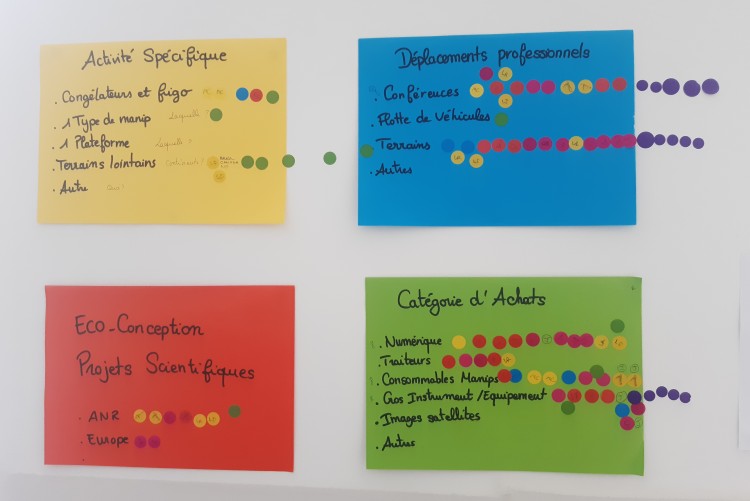 Activité Spécifique
. Congélateurs et frigo
. 1 Type de manip Laquelle ?
. 1 Plateforme Laquelle ?
. Terrains lointains
. Autre Quoi ?
Déplacements professionnels
. Conférences
. Flotte de Véhicules
. Terrains
. Autres
Eco-Conception
Projets Scientifiques
. ANR
. Europe
.
Catégorie d'Achats
. Numérique
. Traiteurs
. Consommables Manips
. Gros Instrument/Equipement
. Images satellites
. Autres